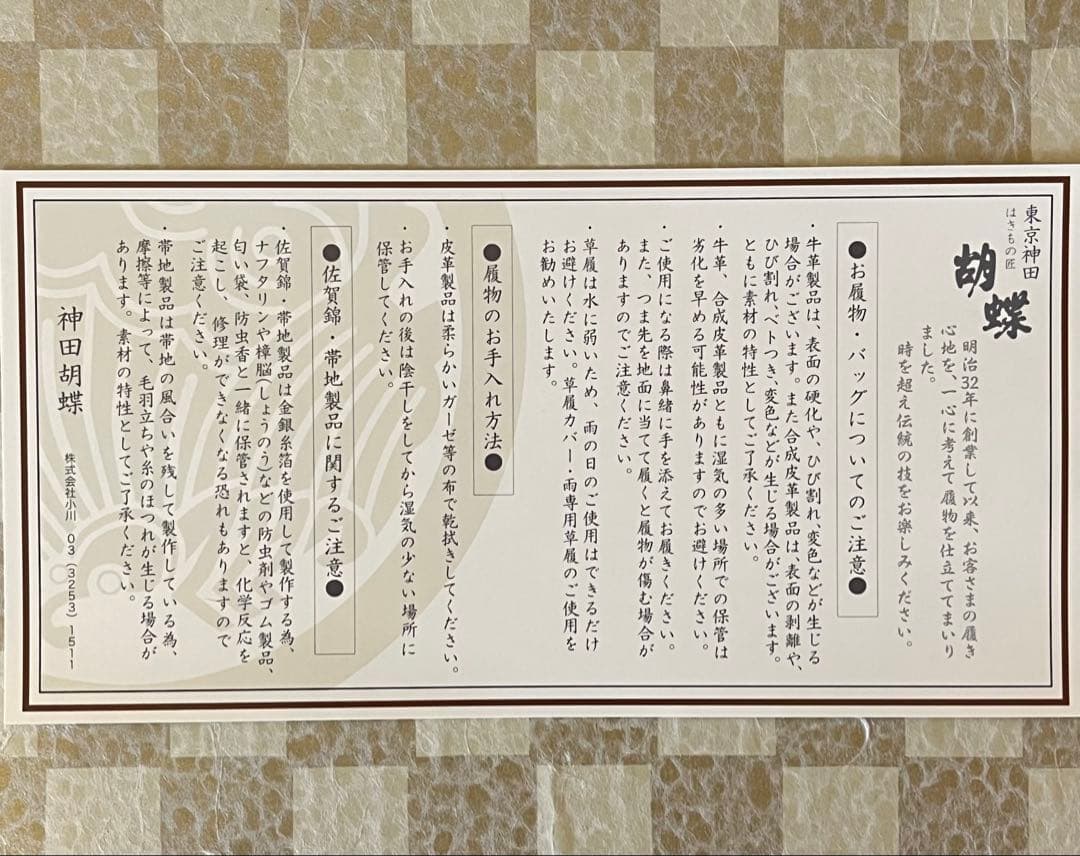 東京神田
はきもの匠
胡蝶
明治32年に創業して以来、お客さまの履き
心地を、一心に考えて履物を仕立ててまいり
ました。
時を超え伝統の技をお楽しみください。
●お履物・バッグについてのご注意●
・牛革製品は、表面の硬化や、ひび割れ、変色などが生じる
場合がございます。また合成皮革製品は表面の剥離や、
ひび割れ、ベトつき、変色などが生じる場合がございます。
ともに素材の特性としてご了承ください。
・牛革、合成皮革製品ともに湿気の多い場所での保管は
劣化を早める可能性がありますのでお避けください。
・ご使用になる際は鼻緒に手を添えてお履きください。
また、つま先を地面に当てて履くと履物が傷む場合が
ありますのでご注意ください。
・草履は水に弱いため、雨の日のご使用はできるだけ
お避けください。草履カバー・雨専用草履のご使用を
お勧めいたします。
●履物のお手入れ方法●
・皮革製品は柔らかいガーゼ等の布で乾拭きしてください。
・お手入れの後は陰干しをしてから湿気の少ない場所に
保管してください。
●佐賀錦・帯地製品に関するご注意●
・佐賀錦・帯地製品は金銀糸箔を使用して製作する為、
ナフタリンや樟脳(しょうのう)などの防虫剤やゴム製品、
匂い袋、防虫香と一緒に保管されますと、化学反応を
起こし、修理ができなくなる恐れもありますので
ご注意ください。
・帯地製品は帯地の風合いを残して製作している為、
摩擦等によって、毛羽立ちや糸のほつれが生じる場合が
あります。素材の特性としてご了承ください。
神田胡蝶
株式会社小川 03(3253)1511